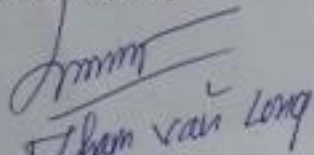 Phạm Văn Long